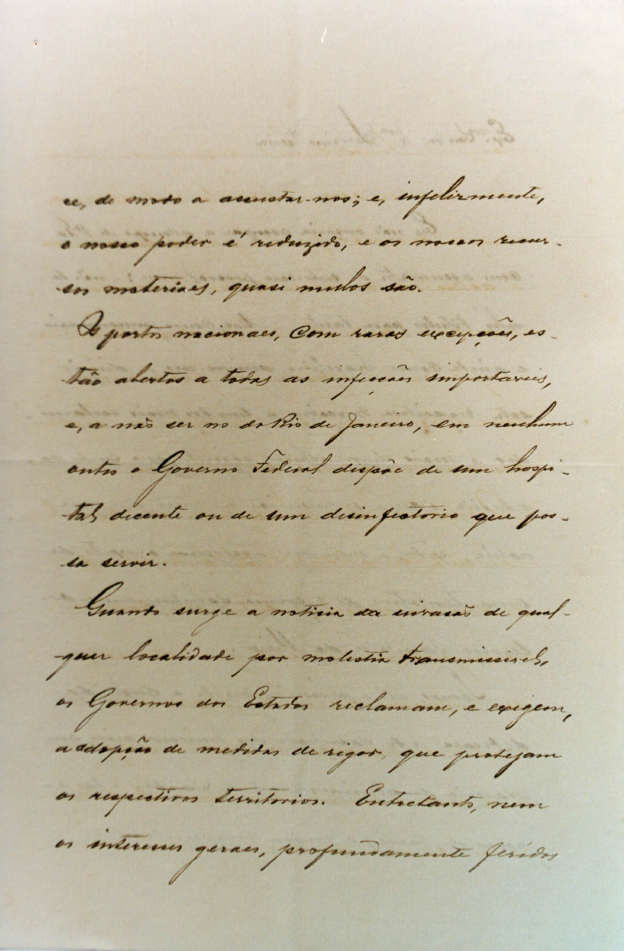 ce, de modo a assustar-nos; e, infelizmente,
o nosso poder é reduzido, e os nossos recur-
sos materiaes, quasi nullos são.
Os portos nacionaes, com raras excepções, es-
tão abertos a todas as infecções importaveis,
e, a não ser no do Rio de Janeiro, em nenhum
outro o Governo Federal dispõe de um hospi-
tal decente ou de um desinfectorio que pos-
sa servir.
Quando surge a noticia da invasão de qual-
quer localidade por molestia transmissivel,
os Governos dos Estados reclamam, e exigem,
a adopção de medidas de rigor, que protejam
os respectivos territorios. Entretanto, nem
os interesses geraes, profundamente feridos